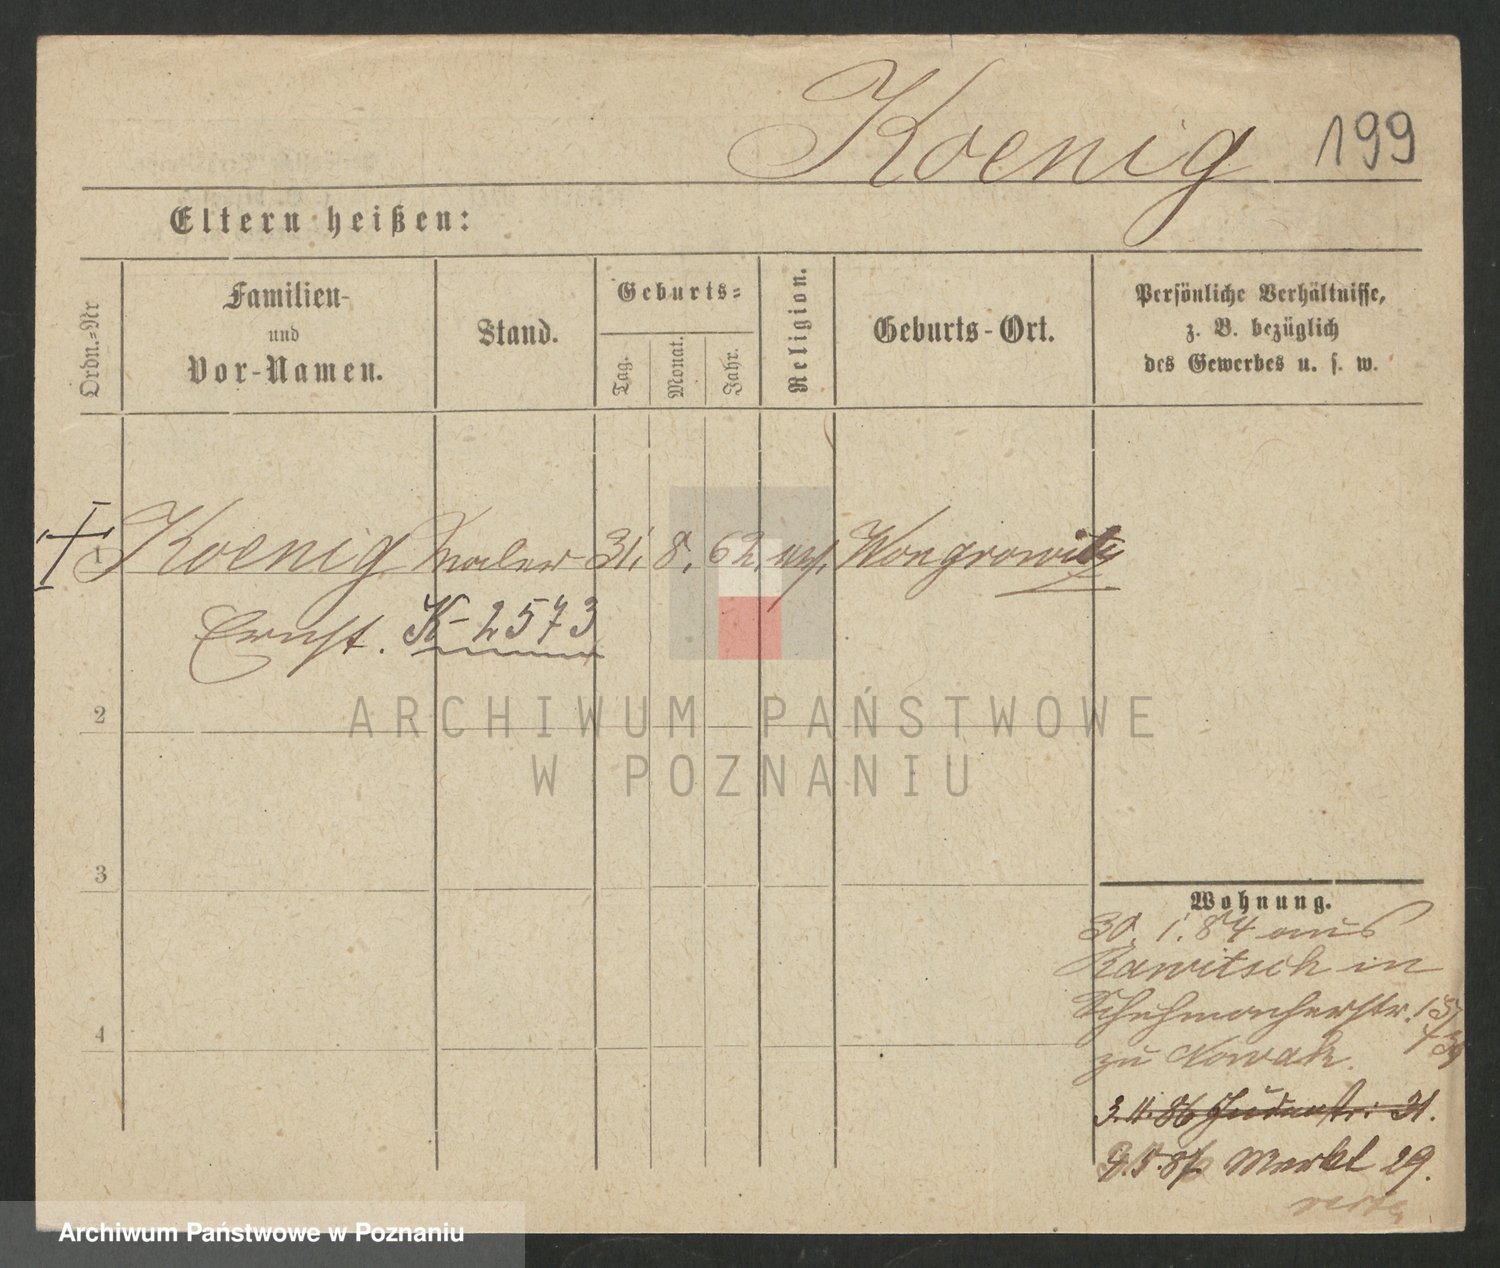 Koenig 199
Eltern heißen:
Ordn.=Nr
Familien-
und
Vor-Namen.
Stand.
Geburts=
Tag.
Monat.
Jahr.
Religion.
Geburts-Ort.
Persönliche Verhältnisse,
z. B. bezüglich
des Gewerbes u. s. w.
1 Koenig Maler 31. 8. 62. ev. Wongrowitz
Ernst. K-2573
2
3
4
Wohnung.
30. 1. 84 aus
Rawitsch in
Schuhmacherstr. 15/
zu Nowak.
3. 11. 86 Judenstr. 31.
5. 87 Markt 29.
ARCHIWUM PAŃSTWOWE
W POZNANIU
Archiwum Państwowe w Poznaniu